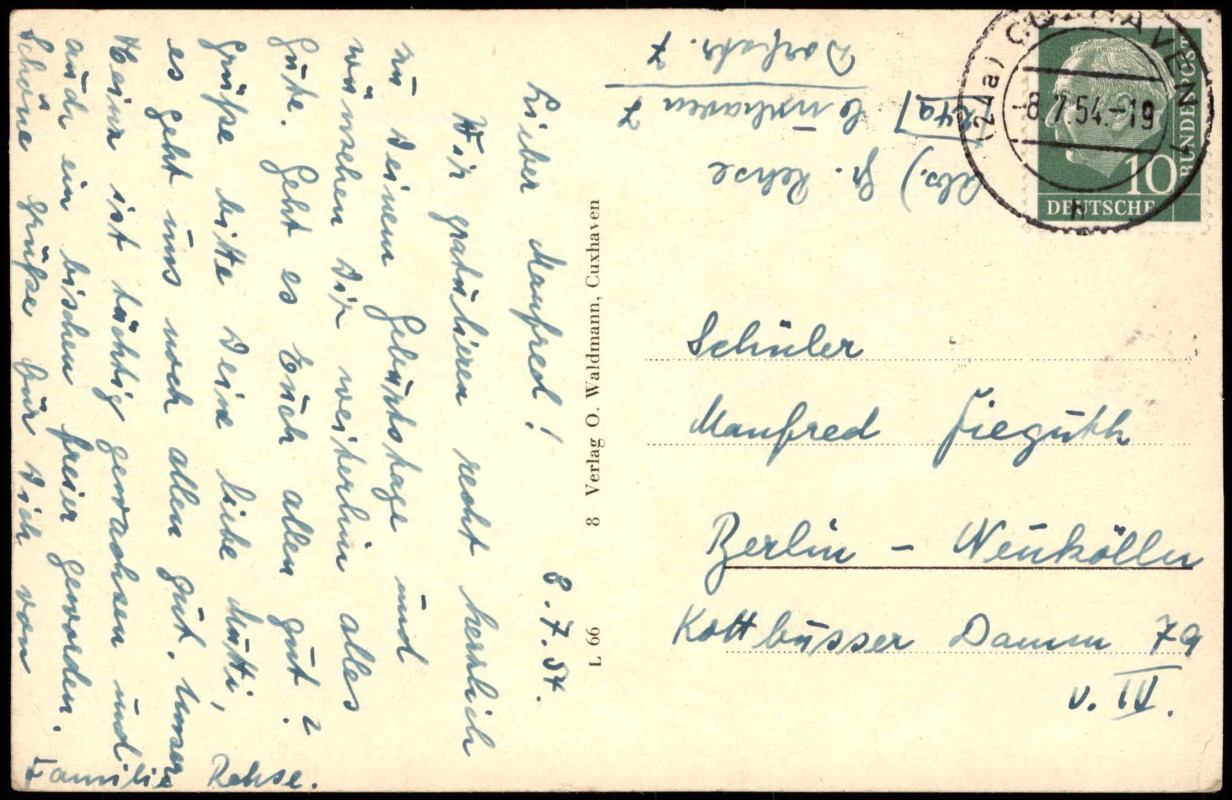 8.7.54.
Lieber Manfred!
Wir gratulieren recht herzlich
zu Deinem Geburtstage und
wünschen Dir weiterhin alles
Gute. Geht es Euch allen gut?
Grüße bitte Deine liebe Mutti,
es geht uns noch allen gut. Unser
Heinz ist tüchtig gewachsen und
auch ein bischen freier geworden.
Schöne Grüße für Dich von
Familie Rehse.
L 66 8 Verlag O. Waldmann, Cuxhaven
Abs.) Gr. Rehse
24a) Cuxhaven 7
Dorfstr. 7
(24a) CUXHAVEN
-8.7.54.-19
h
10
DEUTSCHE
BUNDESPOST
Schüler
Manfred Zieguth
Berlin - Neukölln
Kottbusser Damm 79
v. IV.